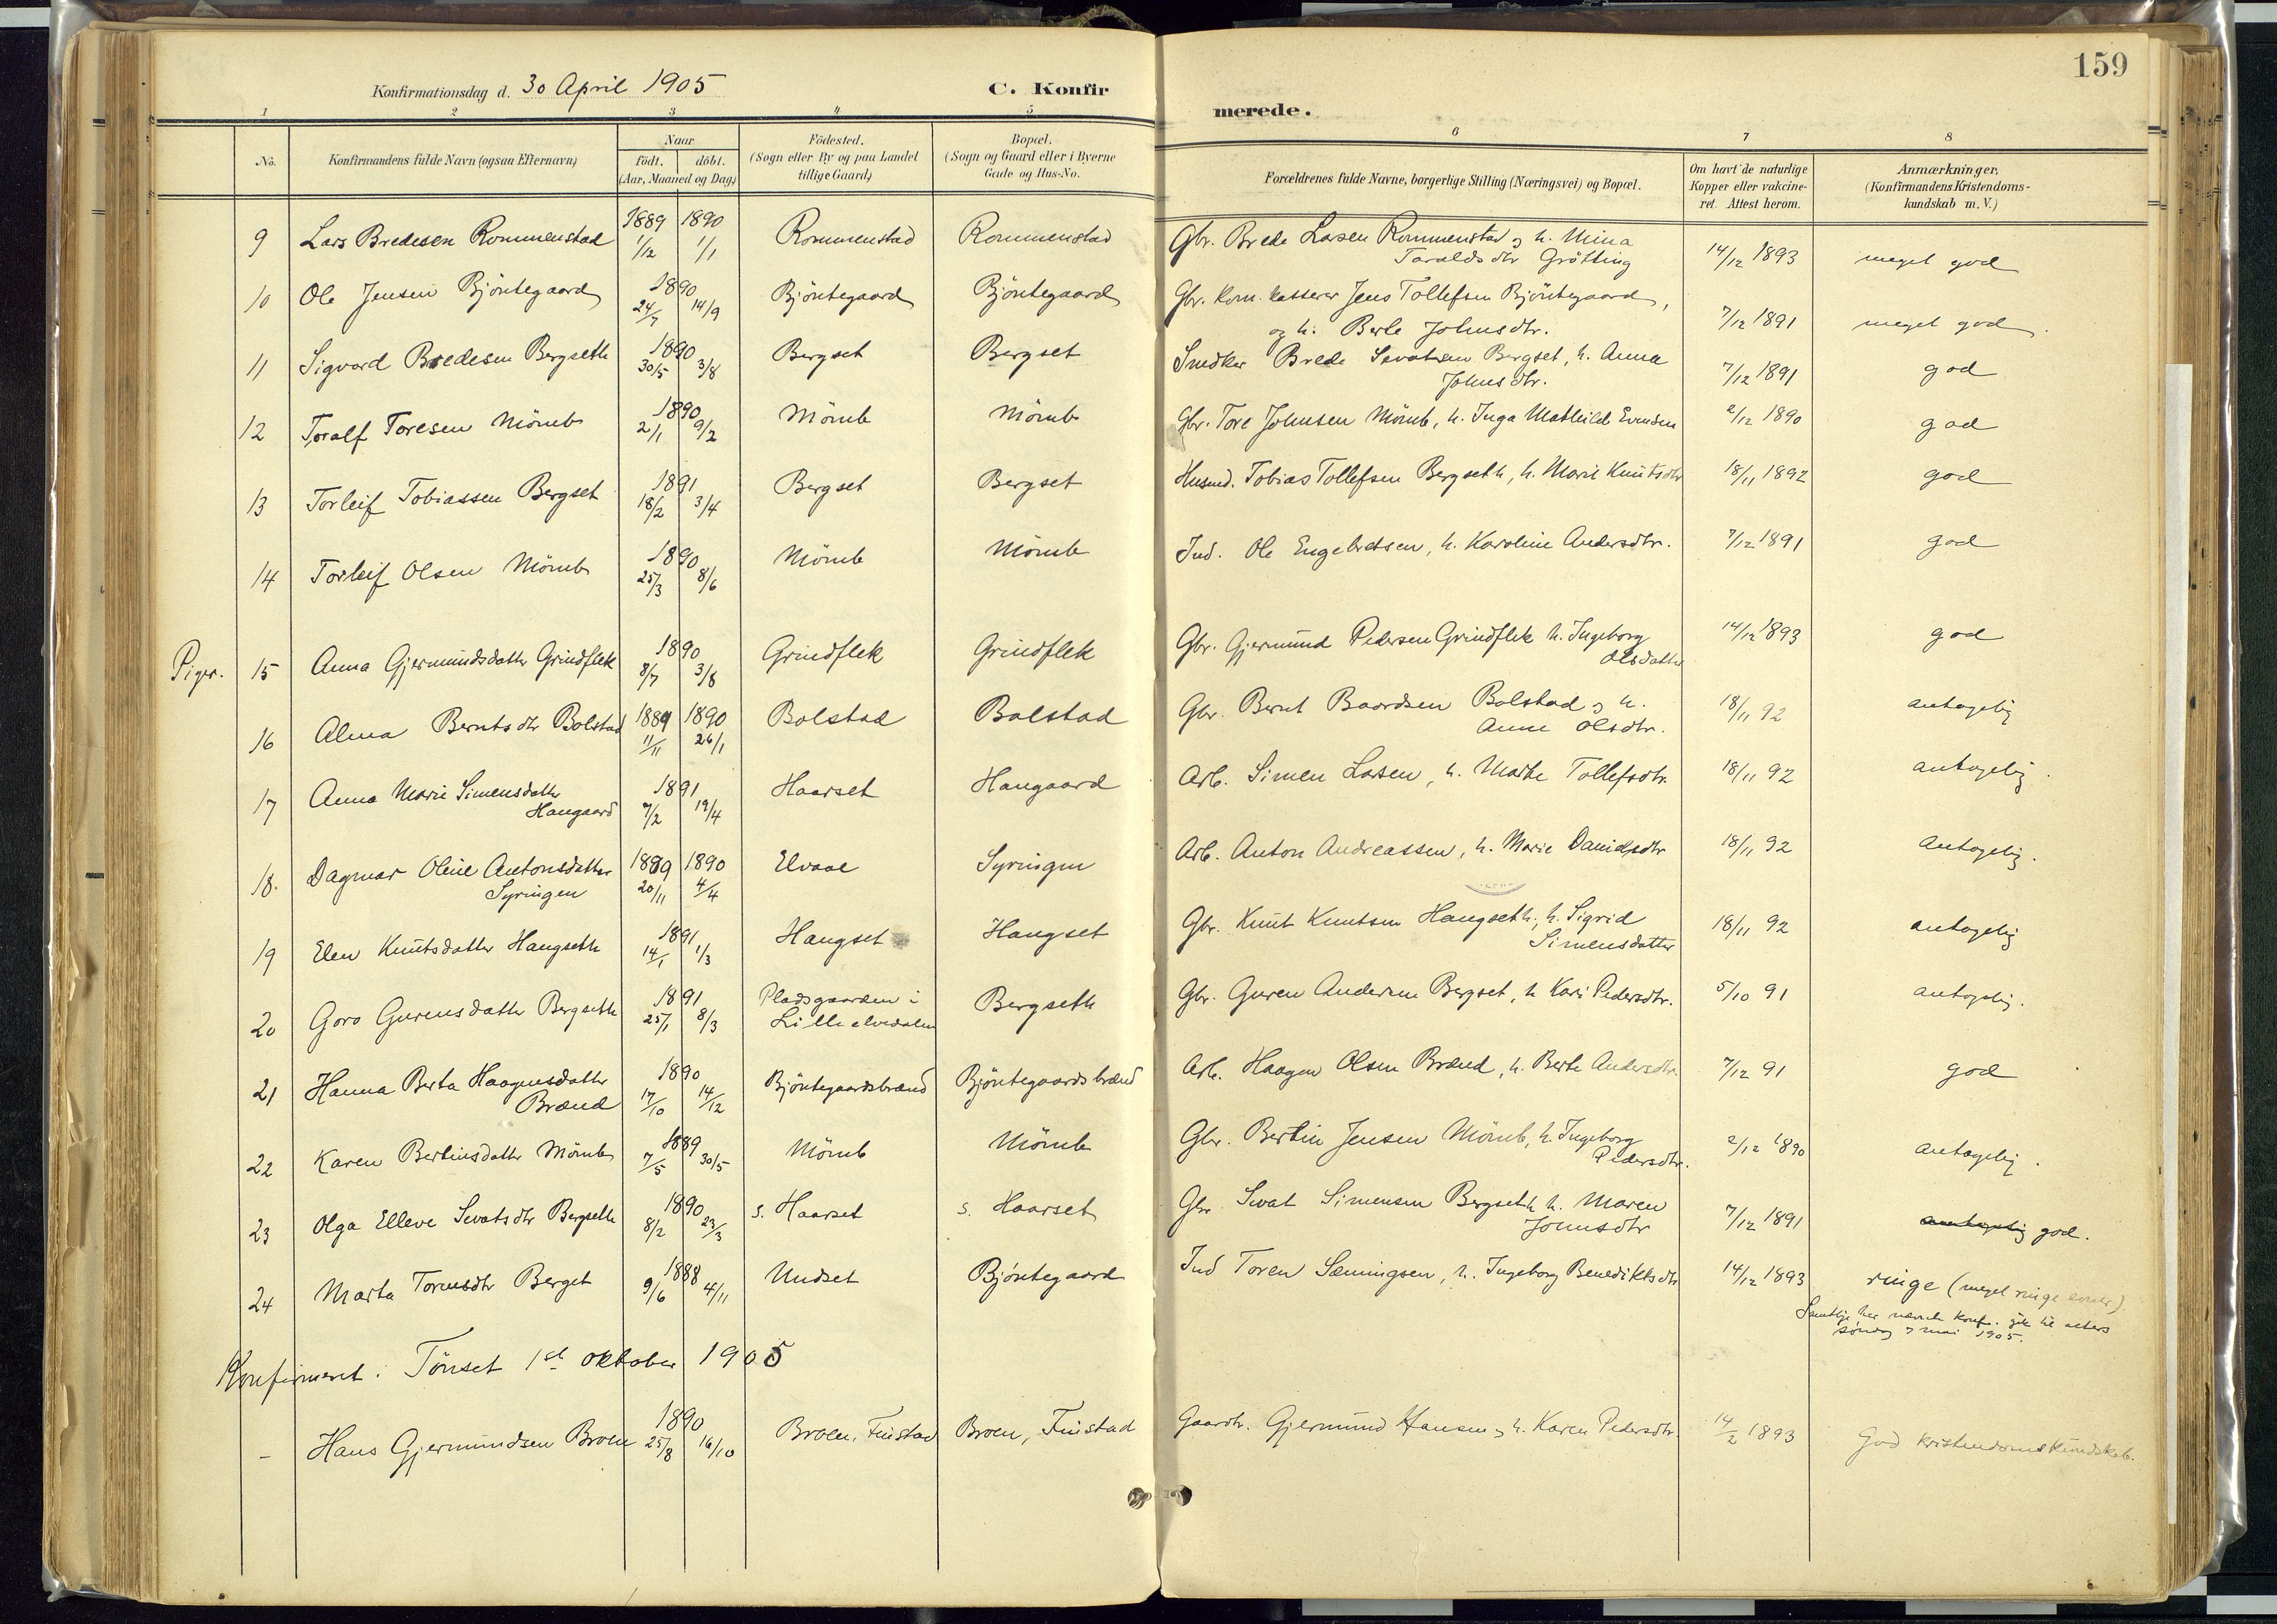 159
Konfirmationsdag d. 30 April 1905
C. Konfirmerede.
1 2 3 4 5 6 7 8
No. | Konfirmandens fulde Navn (ogsaa Efternavn) | Naar födt. döbt. (Aar, Maaned og Dag) | Födested. (Sogn eller By og paa Landet tillige Gaard) | Bopæl. (Sogn og Gaard eller i Byerne Gade og Hus-No. | Forældrenes fulde Navne, borgerlige Stilling (Næringsvei) og Bopæl. | Om havt de naturlige Kopper eller vakcineret. Attest herom. | Anmærkninger, (Konfirmandens Kristendomskundskab m. V.)
9 Lars Bredesen Rommenstad 1889 1/12 1890 1/1 Rommenstad Rommenstad Gbr. Brede Larsen Rommenstad og h. Mina Taraldsdtr Grötting 14/12 1893 meget god
10 Ole Jensen Bjöntegaard 1890 24/7 14/9 Bjöntegaard Bjöntegaard Gbr. Kom. kasserer Jens Tollefsen Bjöntegaard, og h. Berte Johnsdtr. 7/12 1891 meget god.
11 Sigvard Bredesen Bergseth 1890 30/5 3/8 Bergset Bergset Snedker Brede Sevatsen Bergset, h. Anna Johnsdtr. 7/12 1891 god
12 Toralf Toresen Mömb 1890 2/1 9/2 Mömb Mömb Gbr. Tore Johnsen Mömb, h. Inga Mathilde Evensen 2/12 1890 god
13 Torleif Tobiassen Bergset 1891 18/2 3/4 Bergset Bergset Husmd. Tobias Tollefsen Bergseth, h. Marie Knutsdtr 18/11 1892 god
14 Torleif Olsen Mömb 1890 25/3 8/6 Mömb Mömb Ind. Ole Engebretsen, h. Karoline Andersdtr. 7/12 1891 god
Piger. 15 Anna Gjermundsdatter Grindflek 1890 8/7 3/8 Grindflek Grindflek Gbr. Gjermund Pedersen Grindflek h. Ingeborg Olsdatter 14/12 1893 god
16 Alma Berntsdtr Bolstad 1889 11/11 1890 26/1 Bolstad Bolstad Gbr. Bernt Baardsen Bolstad og h. Anne Olsdtr. 18/11 92 antagelig
17 Anna Marie Simensdatter Haugaard 1891 7/2 19/4 Haarset Haugaard Arb. Simen Larsen, h. Marthe Tollefsdtr. 18/11 92 antagelig.
18. Dagmar Oline Antonsdatter Syringen 1889 20/11 1890 4/4 Elvaae Syringen Arb. Anton Andreassen, h. Marie Danielsdtr 18/11 92 Antagelig.
19 Elen Knutsdatter Haugseth 1891 14/1 1/3 Haugset Haugset Gbr. Knut Knutsen Haugseth, h. Sigrid Simensdatter 18/11 92 antagelig
20 Goro Gurensdatter Bergseth 1891 25/1 8/3 Pladsgaarden i Lille elvedalen Bergseth Gbr. Guren Andersen Bergset, h Kari Pedersdtr. 5/10 91 antagelig.
21 Hanna Berta Haagensdatter Brænd 1890 17/10 14/12 Bjöntegaardsbrænd Bjöntegaardsbrænd Arb. Haagen Olsen Brænd, h. Berte Andersdtr. 7/12 91 god
22 Karen Bertinsdatter Mömb 1889 7/5 30/5 Mömb Mömb Gbr. Bertin Jensen Mömb, h. Ingeborg Pedersdtr. 2/12 1890 antagelig.
23 Olga Elleve Sevatsdtr Bergseth 1890 8/2 23/3 s. Haarset s. Haarset Gbr. Sevat Simensen Bergseth h. Maren Jonnsdtr 7/12 1891 antagelig god.
24 Marta Torensdtr Berget 1888 9/6 4/11 Undset Bjöntegaard Ind Toren Sæmingsen, h. Ingeborg Benediktsdtr 14/12 1893 ringe (meget ringe evner).
Samtlige her nævnte konf. gik til alters söndag 7 mai 1905.
Konfirmeret i Tönset 1st oktober 1905
– Hans Gjermundsen Broen 1890 25/8 16/10 Broen, Finstad Broen, Finstad Gaardbr. Gjermund Hansen og h. Karen Pedersdtr 14/2 1893 God kristendomskundskab.